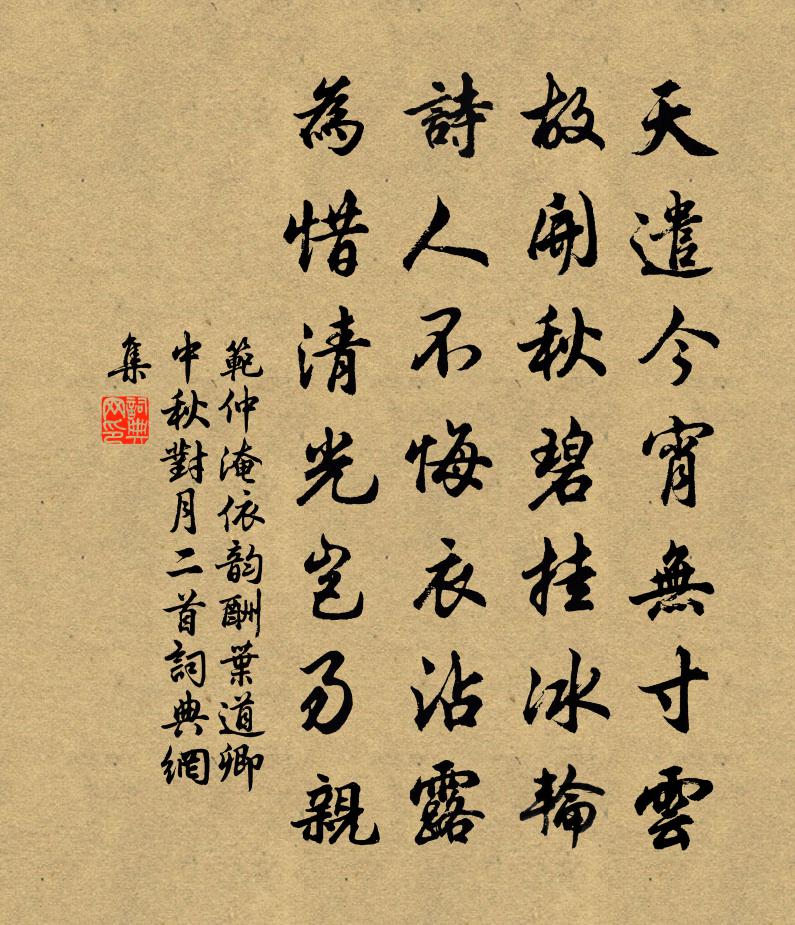 天遣今宵無寸雲
故開秋碧挂冰輪
詩人不悔衣沾露
為惜清光豈易親
範仲淹依韵酬葉道卿
中秋對月二首詞典網
集
詞典
网印